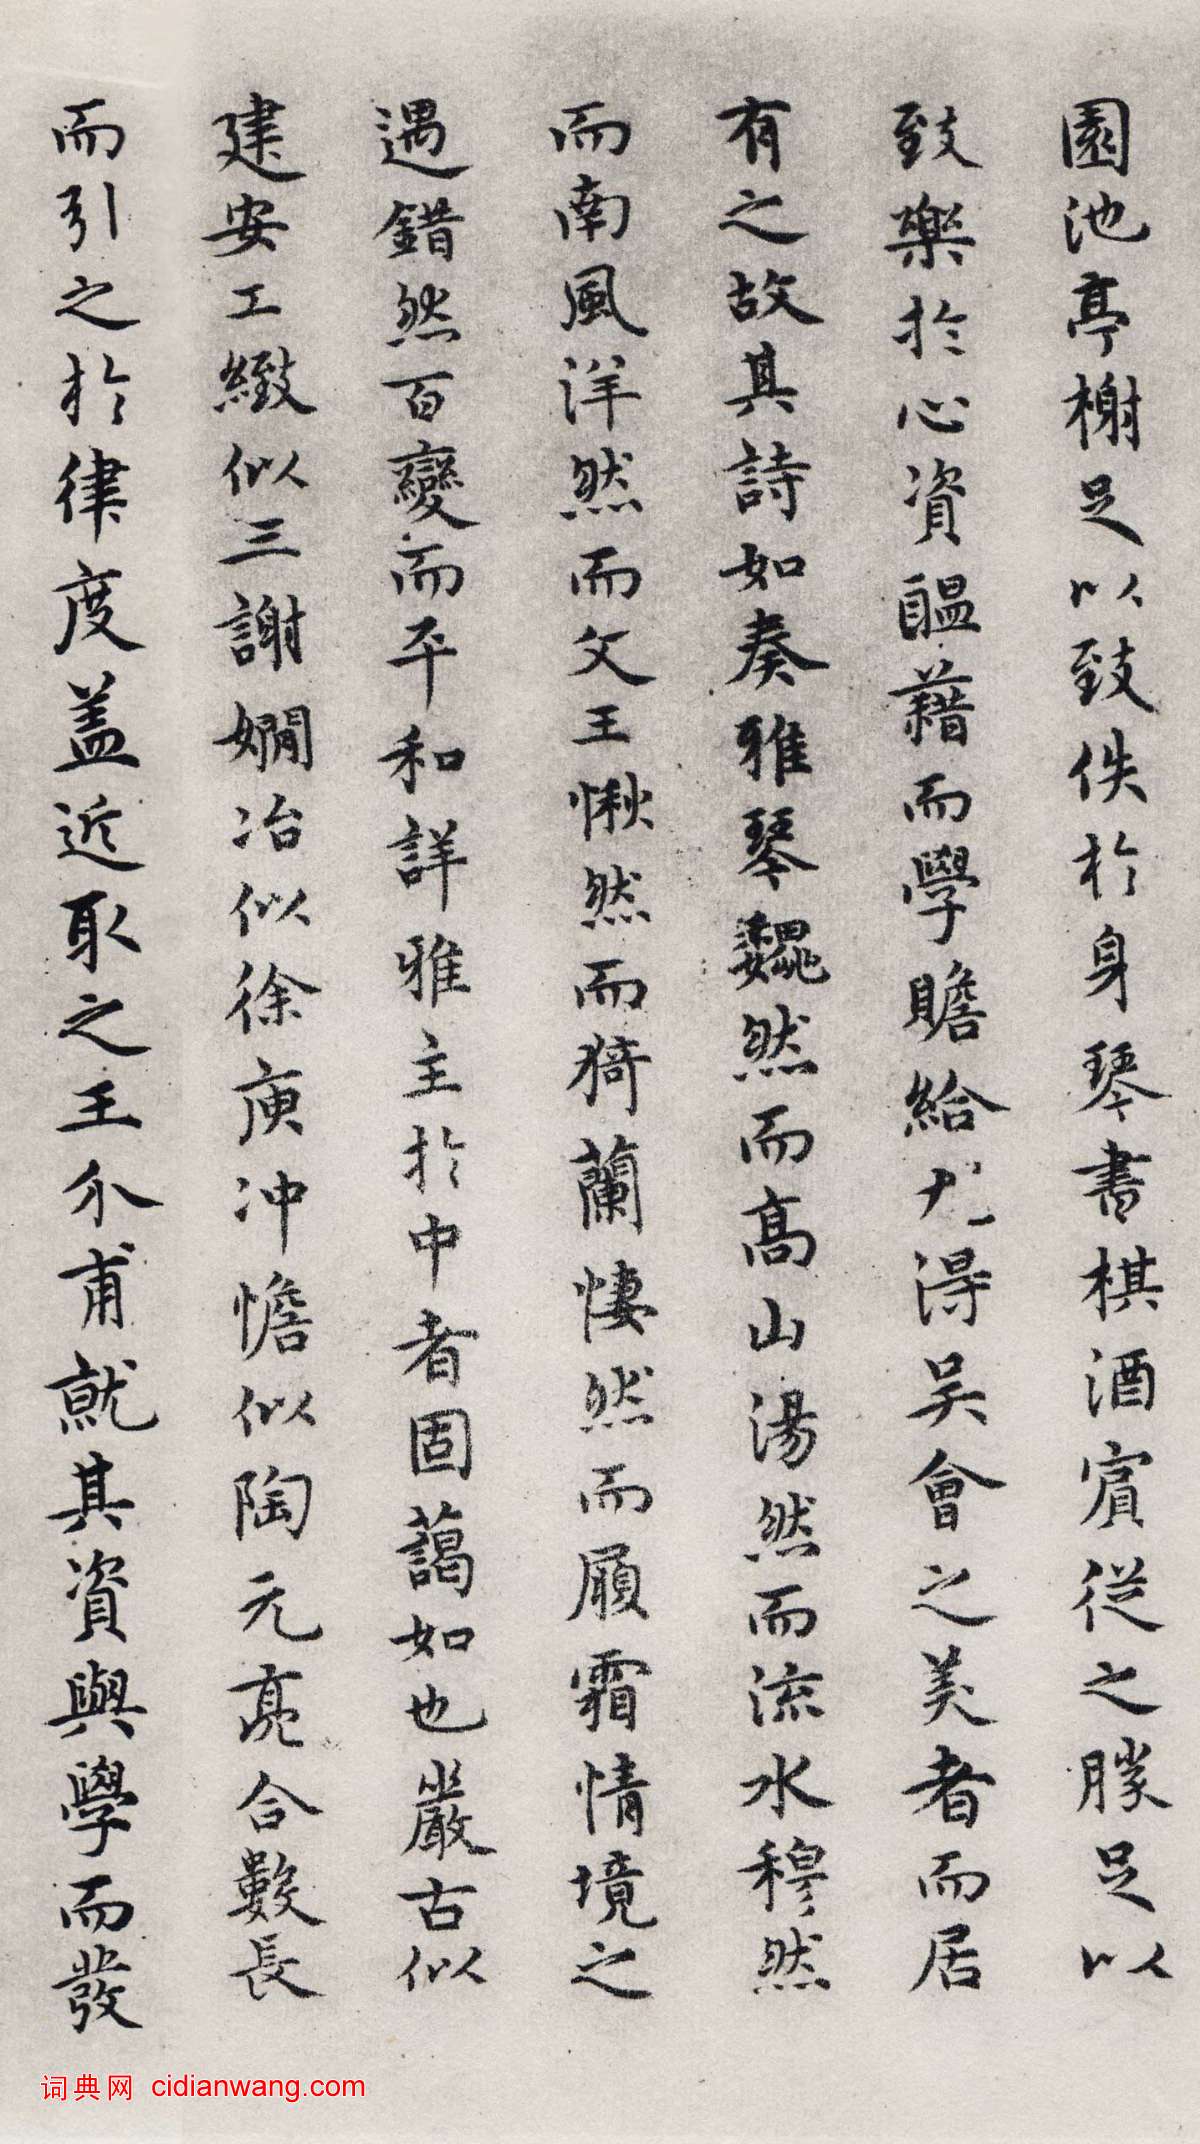 園池亭榭足以致佚於身琴書棋酒賓從之勝足以
致樂於心資醞藉而學贍給尤得吴會之美者而居
有之故其詩如奏雅琴巍然而高山湯然而流水穆然
而南風洋然而文王愀然而猗蘭悽然而履霜情境之
遇錯然百變而平和詳雅主於中者固藹如也嚴古似
建安工緻似三謝嫺冶似徐庾冲憺似陶元亮合數長
而引之於律度盖近取之王介甫就其資與學而發
词典网 cidianwang.com